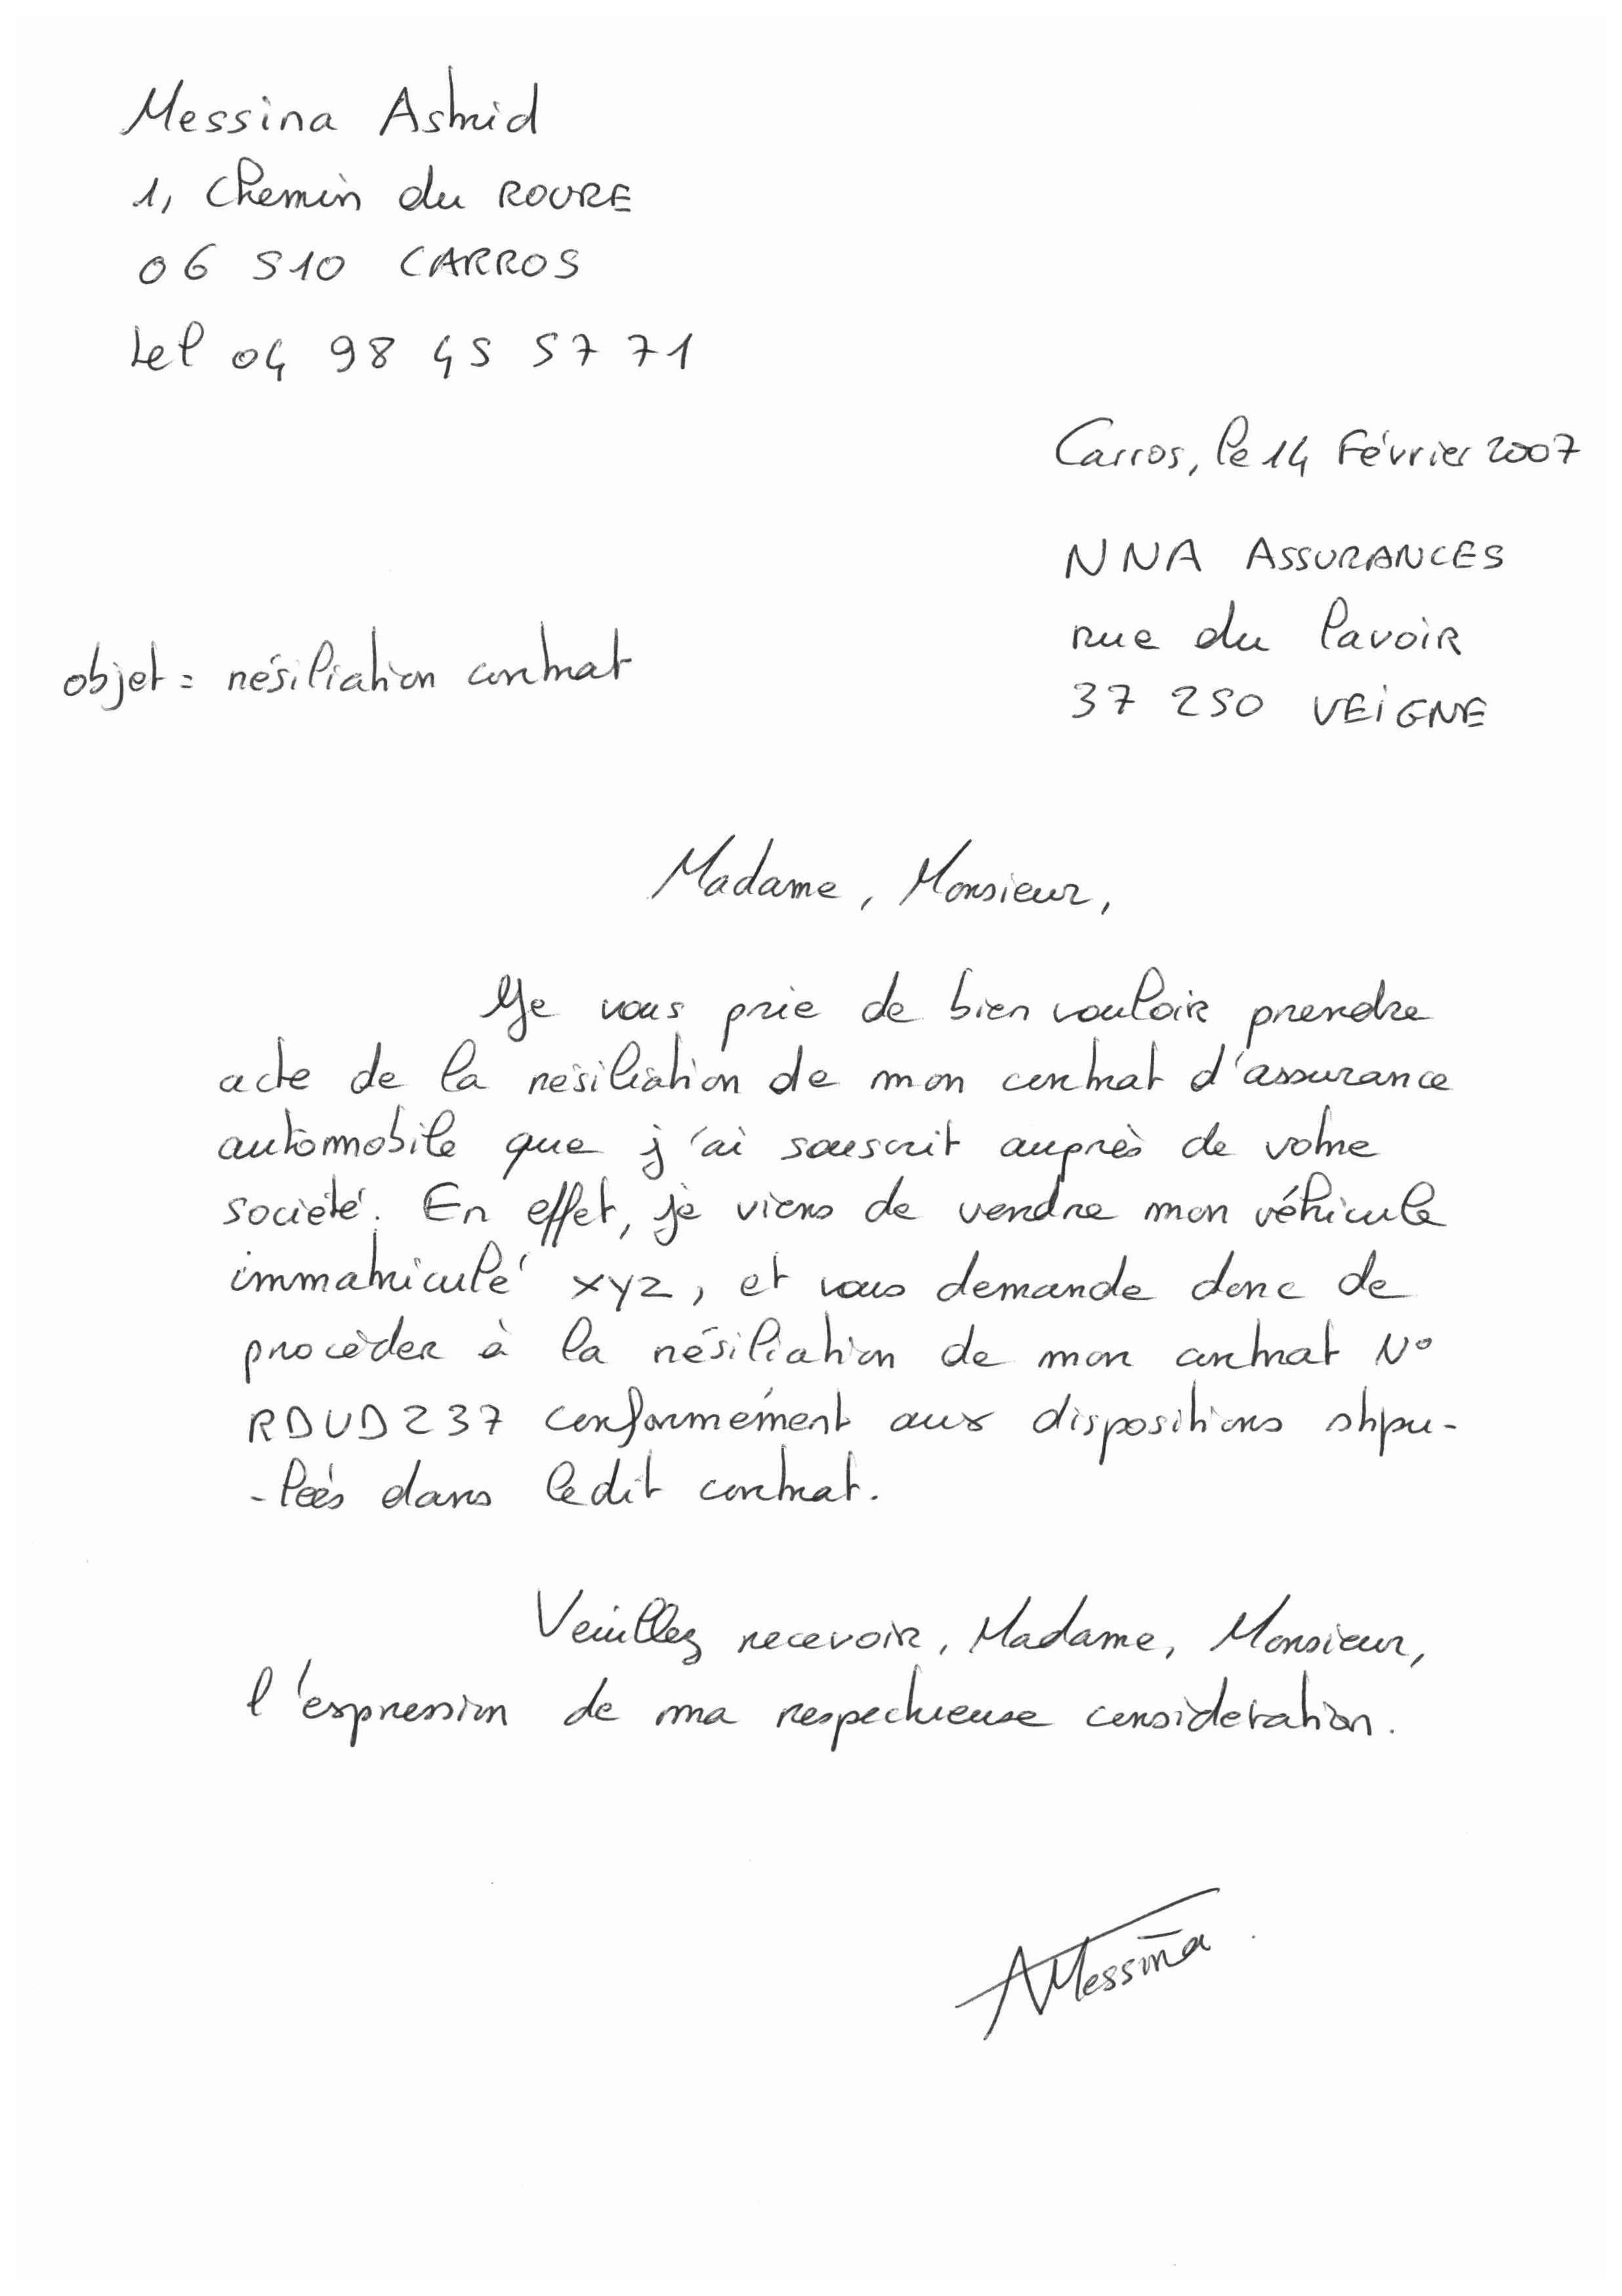 Messina Astrid
1, Chemin du ROURE
06 510 CARROS
tel 04 98 45 57 71
Carros, le 14 Février 2007
NNA ASSURANCES
rue du lavoir
37 250 VEIGNE
objet = résiliation contrat
Madame, Monsieur,
Je vous prie de bien vouloir prendre
acte de la résiliation de mon contrat d'assurance
automobile que j'ai souscrit auprès de votre
société. En effet, je viens de vendre mon véhicule
immatriculé xyz, et vous demande donc de
procéder à la résiliation de mon contrat N°
RDUD237 conformément aux dispositions stipu-
-lées dans ledit contrat.
Veuillez recevoir, Madame, Monsieur,
l'expression de ma respectueuse consideration.
AMessina